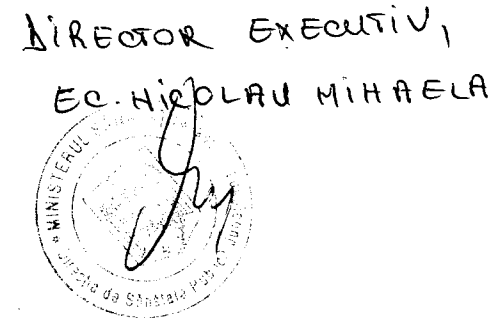 DIRECTOR EXECUTIV,
EC. NICOLAU MIHAELA
MINISTERUL
Direcția de Sănătate Public